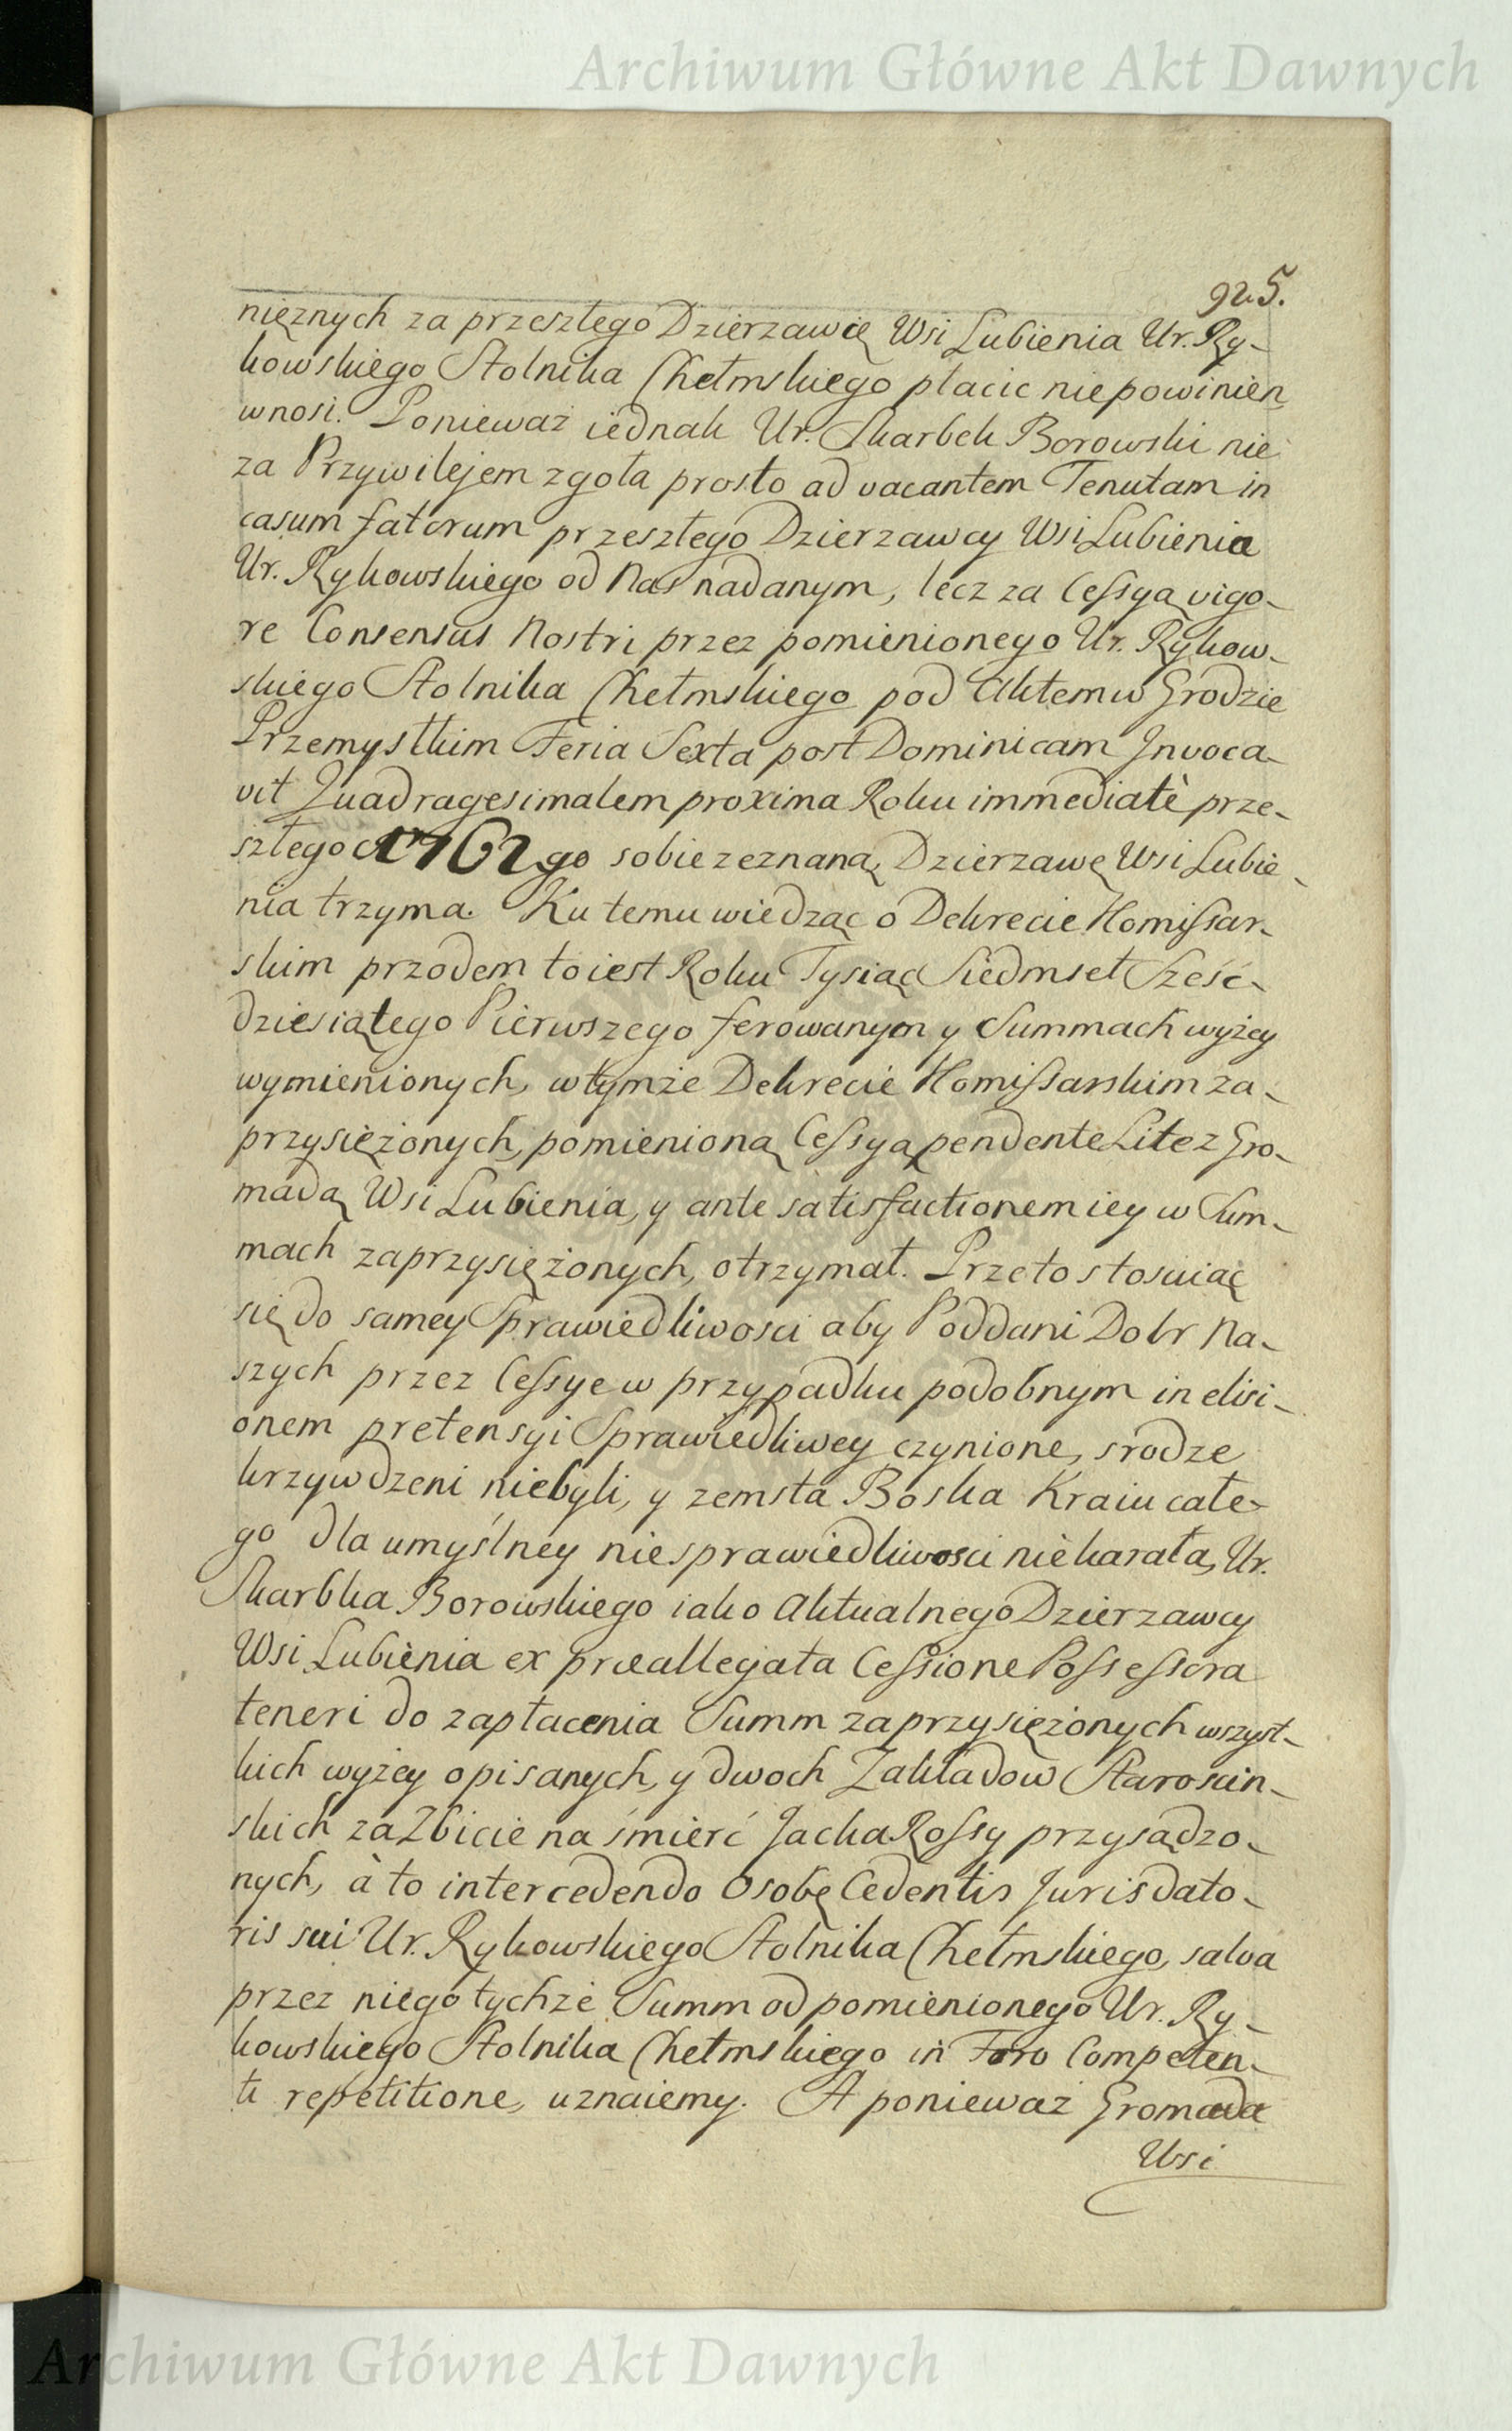 Archiwum Główne Akt Dawnych
925.
nięznych za przeszłego Dzierzawcę Wsi Lubienia Ur. Ry-
kowskiego Stolnika Chełmskiego płacic niepowinien
wnosi. Ponieważ iednak Ur. Skarbek Borowski nie
za Przywilejem zgoła prosto ad vacantem Tenutam in
casum fatorum przeszłego Dzierzawcy Wsi Lubienia
Ur. Rykowskiego od Nas nadanym, lecz za Cessyą vigo-
re Consensus Nostri przez pomienionego Ur. Rykow-
skiego Stolnika Chełmskiego pod Aktem w Grodzie
Przemyskim Feria Sexta post Dominicam Invoca-
vit Quadragesimalem proxima Roku immediatè prze-
szłego 1762go sobie zeznaną Dzierzawę Wsi Lubie-
nia trzyma. Ku temu wiedząc o Dekrecie Komissar-
skim przodem to iest Roku Tysiąc Siedmset Sześć-
dziesiątego Pierwszego ferowanym y Summach wyżey
wymienionych, w tymże Dekrecie Komissarskim za-
przysiężonych, pomienioną Cessyą pendente Lite z Gro-
madą Wsi Lubienia, y ante satisfactionem iey w Sum-
mach zaprzysiężonych, otrzymał. Przeto stosuiąc
się do samey Sprawiedliwosci aby Poddani Dobr Na-
szych przez Cessye w przypadku podobnym in elisi-
onem pretensyi Sprawiedliwey czynione, srodze
krzywdzeni niebyli, y zemsta Boska Kraiu całe-
go dla umyślney niesprawiedliwosci niekarała, Ur.
Skarbka Borowskiego iako Aktualnego Dzierzawcy
Wsi Lubienia ex præallegata Cessione Possessora
teneri do zapłacenia Summ zaprzysiężonych wszyst-
kich wyżey opisanych, y dwoch Zakładow Staroscin-
skich za Zbicie na śmierć Jacka Rossy przysądzo-
nych, à to intercedendo Osobę Cedentis Juris dato-
ris sui Ur. Rykowskiego Stolnika Chełmskiego, salva
przez niego tychże Summ od pomienionego Ur. Ry-
kowskiego Stolnika Chełmskiego in Foro Competen-
ti repetitione, uznaiemy. A ponieważ Gromada
Wsi
Archiwum Główne Akt Dawnych